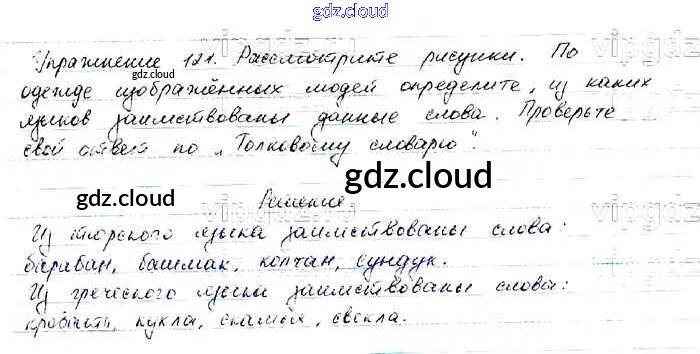 gdz.cloud
Упражнение 121. Рассмотрите рисунки. По
одежде изображённых людей определите, из каких
языков заимствованы данные слова. Проверьте
свой ответ по „Толковому словарю".
Решение.
Из тюрского языка заимствованы слова:
барабан, башмак, колчан, сундук.
Из греческого языка заимствованы слова:
кровать, кукла, скамья, свекла.
gdz.cloud
gdz.cloud
gdz.cloud
gdz.cloud
vipgdz
vipgdz
vipgdz